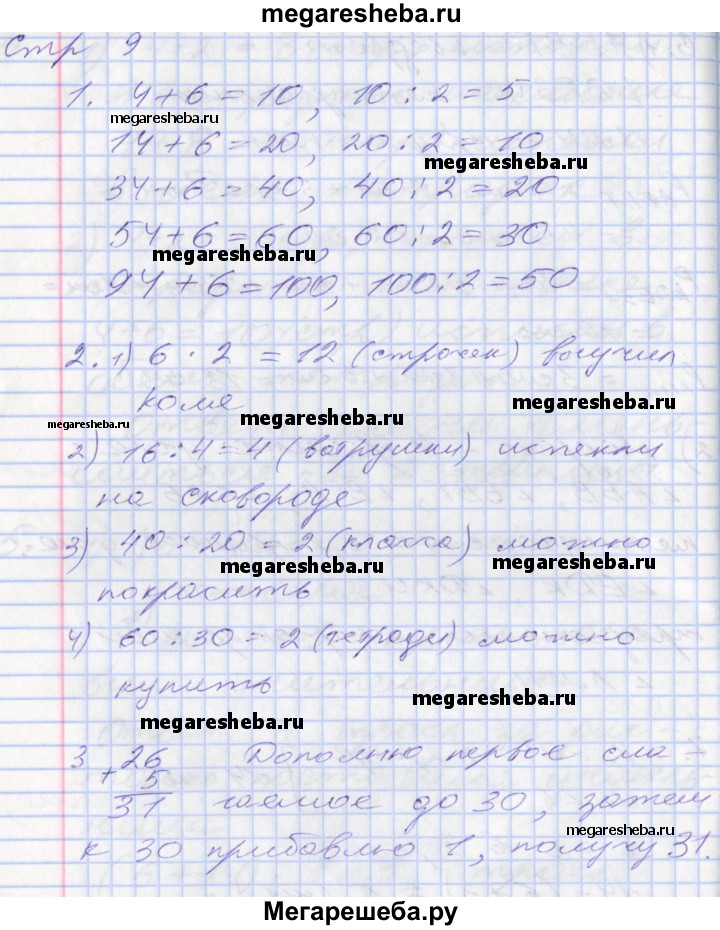 megaresheba.ru
Стр 9
1. 4+6=10, 10:2=5
megaresheba.ru
14+6=20, 20:2=10
megaresheba.ru
34+6=40, 40:2=20
54+6=60, 60:2=30
megaresheba.ru
94+6=100, 100:2=50
2. 1) 6·2=12 (строчек) выучил
Коля
megaresheba.ru
megaresheba.ru
megaresheba.ru
2) 16:4=4 (ватрушки) испекли
на сковороде
3) 40:20=2 (класса) можно
megaresheba.ru
megaresheba.ru
покрасить
4) 60:30=2 (тетради) можно
купить
megaresheba.ru
megaresheba.ru
3 26 Дополню первое сла-
+ 5
31 гаемое до 30, затем
megaresheba.ru
к 30 прибавлю 1, получу 31.
Мегарешеба.ру